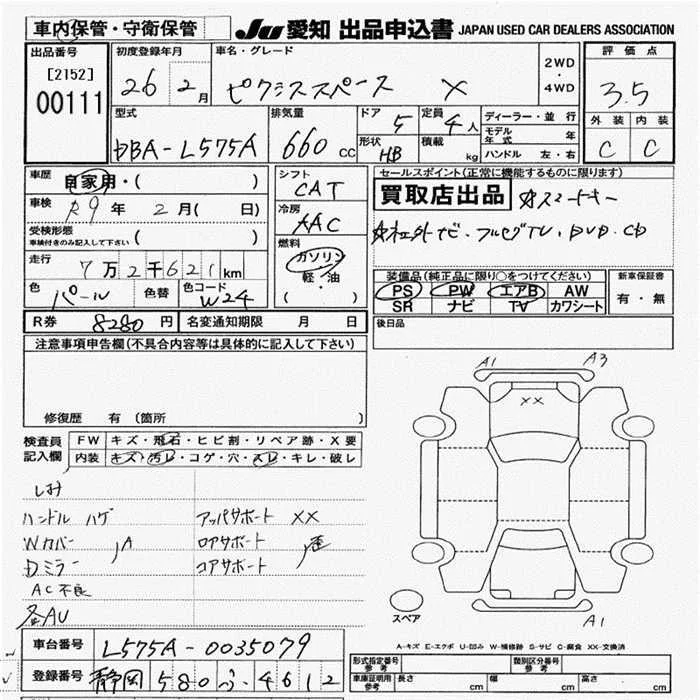 車内保管・守衛保管
JU 愛知 出品申込書 JAPAN USED CAR DEALERS ASSOCIATION
出品番号 初度登録年月 車名・グレード 2WD・4WD 評価点
[2152]
00111 26 2月 ピクシススペース X 3.5
型式 排気量 ドア 定員 ディーラー・並行 外装 内装
DBA-L575A 660cc 5 4人 モデル年式 年 C C
形状 HB 積載 kg ハンドル 左・右
車歴 自家用・( ) シフト セールスポイント(正常に機能するものに限ります)
CAT 買取店出品 スマートキー
車検 R9年 2月( 日) 冷房
AAC 社外ナビ・フルセグTV・DVD・CD
受検形態
車検付きのみ記入して下さい ( ) 燃料
走行 7万2千621km ガソリン 装備品(純正品に限り○をつけてください) 新車保証書
軽・油 PS PW エアB AW 有・無
色 パール 色替 色コード W24 ( ) SR ナビ TV カワシート
R券 8280円 名変通知期限 月 日 後日品
注意事項申告欄(不具合内容等は具体的に記入して下さい)
A1 A3
XX
修復歴 有 (箇所 )
検査員 FW キズ・飛石・ヒビ割・リペア跡・X要
記入欄 内装 キズ・汚レ・コゲ・穴・スレ・キレ・破レ
しみ
ハンドル ハゲ アッパサポート XX
Wカバー A ロアサポート
Dミラー コアサポート
AC不良
各AU スペア A1
車台番号 L575A-0035079 A-キズ E-エクボ U-凹み W-補修跡 S-サビ C-腐食 XX-交換済
登録番号 静岡 580 4612 形式指定番号 参考 類別区分番号 参考
車庫証明用 参考 長さ cm 幅 cm 高さ cm